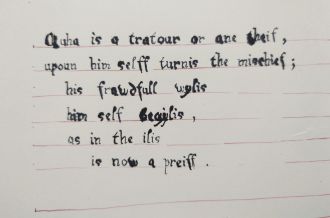 Quha is a tratour or ane theif,
upoun him selff turnis the mischief;
his frawdfull wylis
him self begylis,
as in the ilis
is now a preiff.